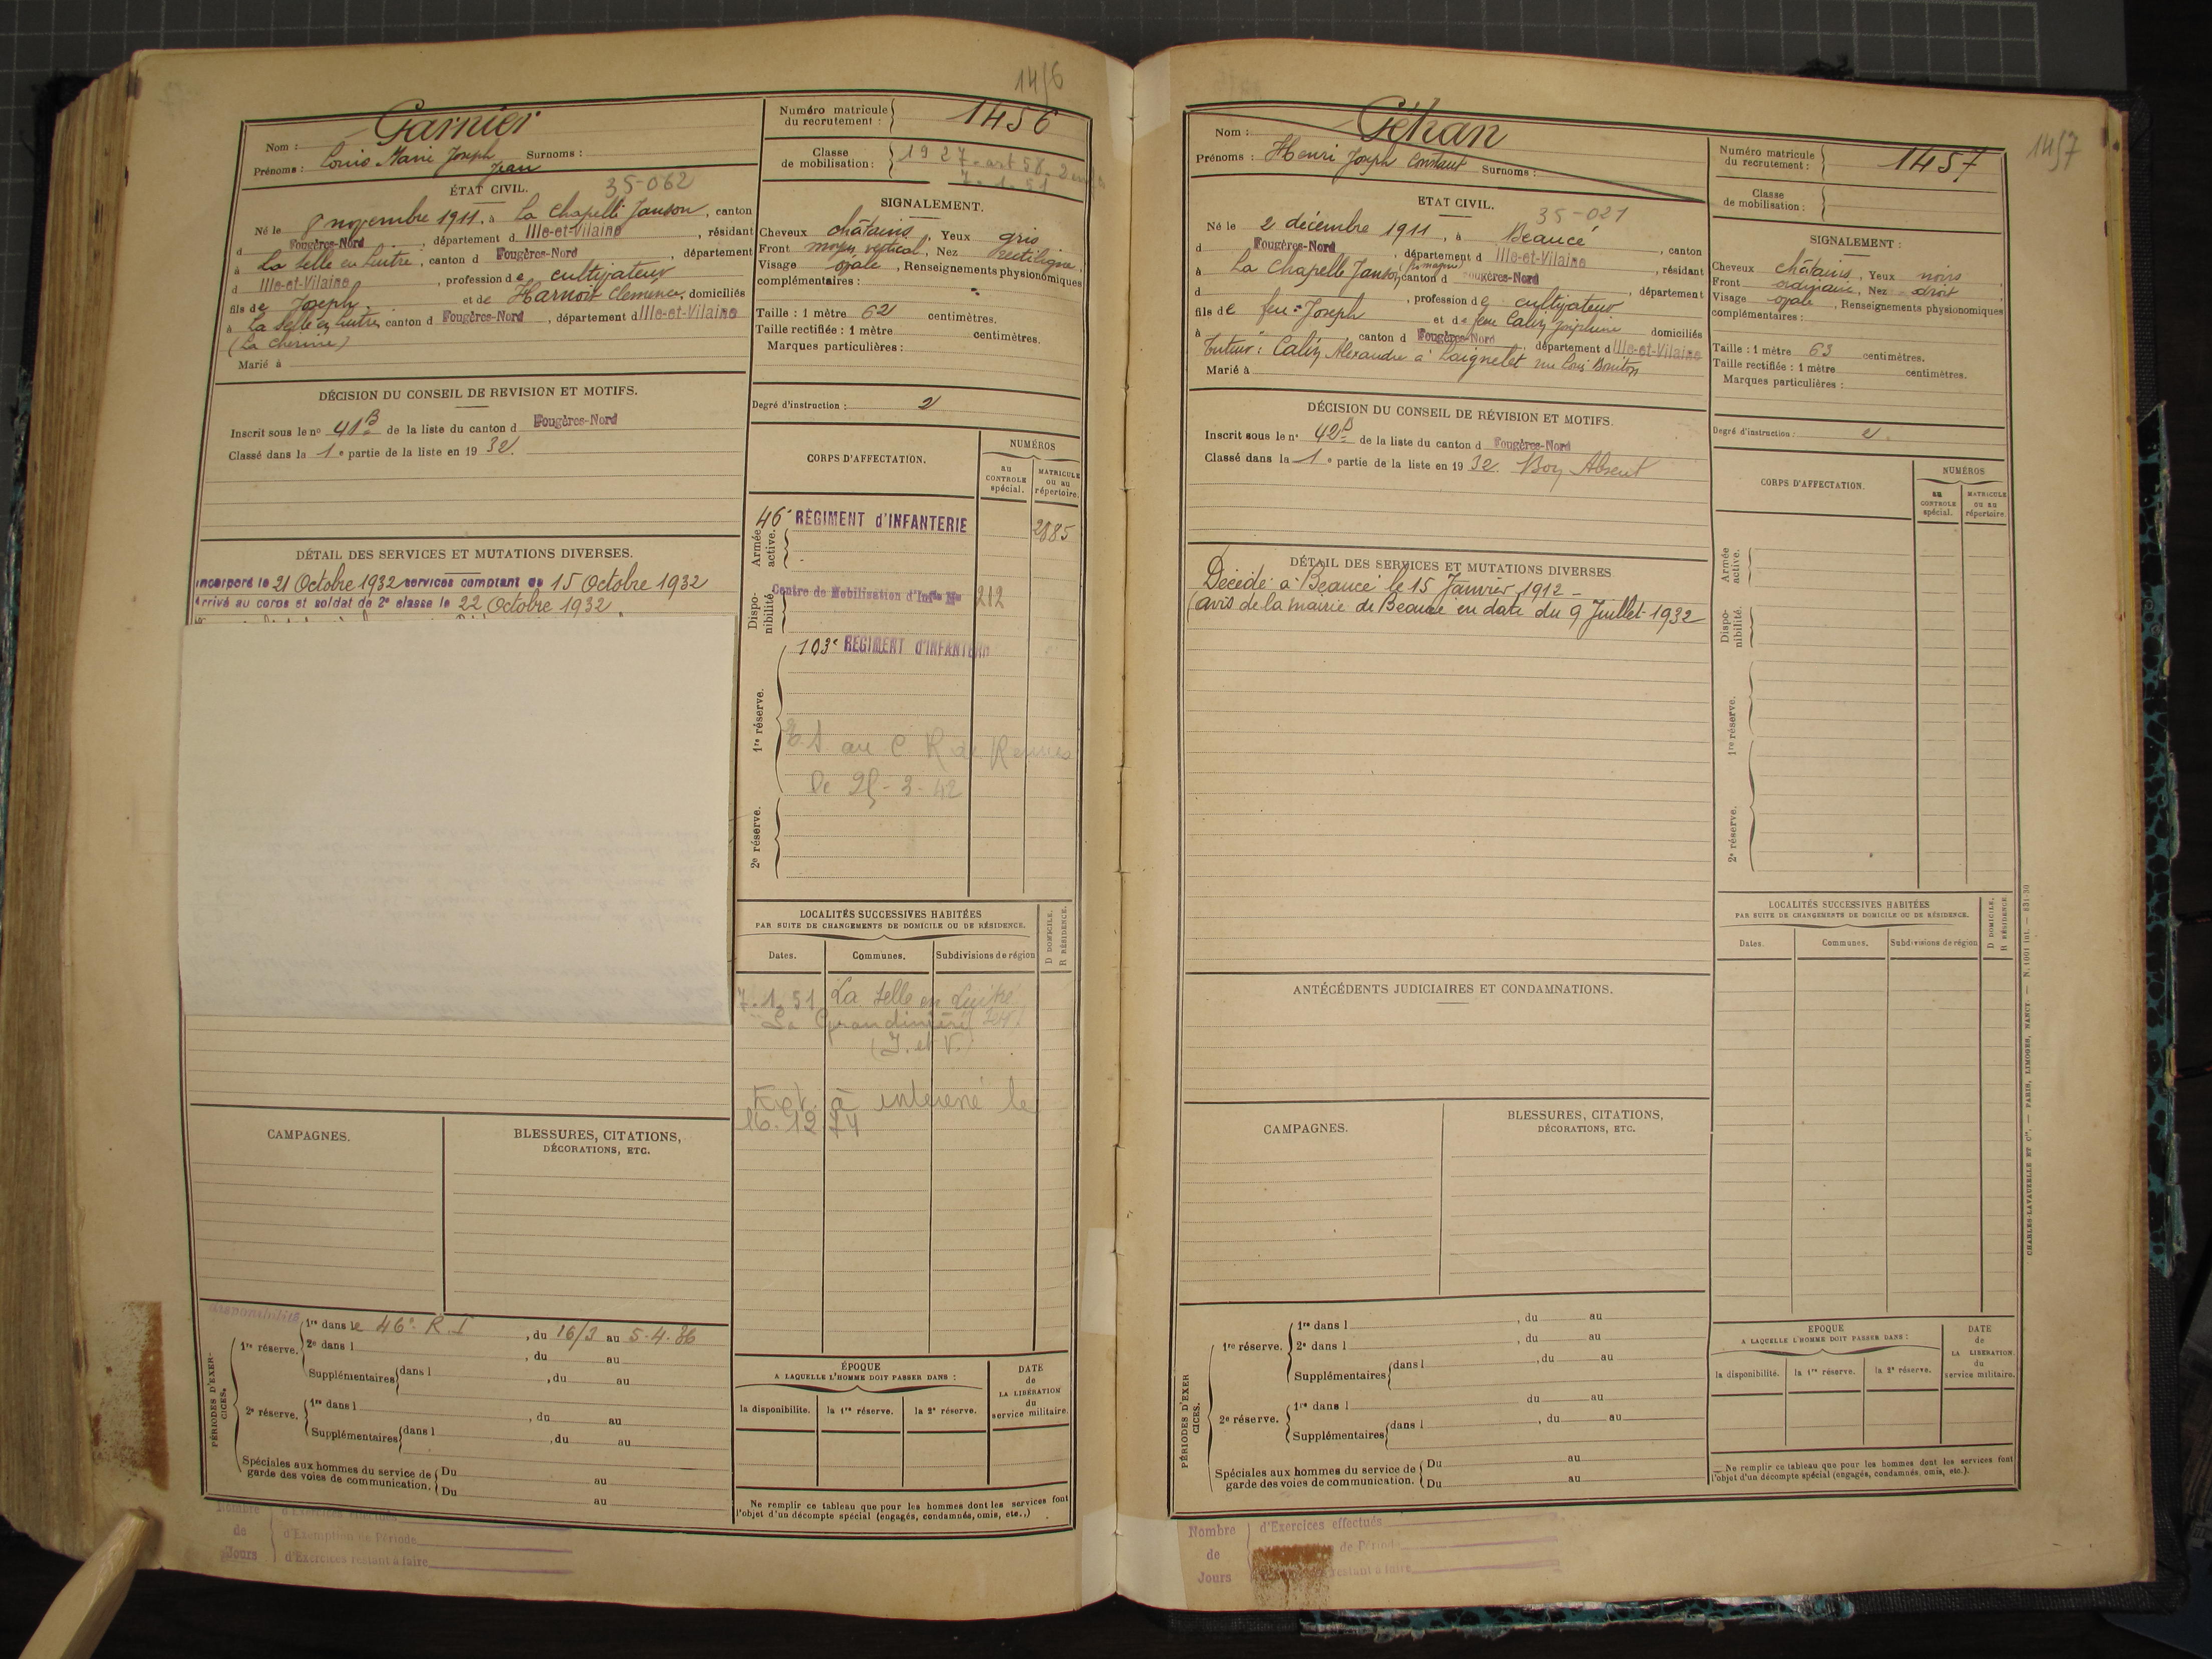 1456
Nom : Garnier
Prénoms : Louis Marie Joseph Jean Surnoms :
ÉTAT CIVIL. 35-062
Né le 8 novembre 1911, à La Chapelle Janson, canton
d Fougères-Nord, département d Ille-et-Vilaine, résidant
à La Selle en Luitré, canton d Fougères-Nord, département
d Ille-et-Vilaine, profession de cultivateur
fils de Joseph et de Harnoit Clémence, domiciliés
à La Selle en Luitré, canton d Fougères-Nord, département d Ille-et-Vilaine
Marié à
DÉCISION DU CONSEIL DE REVISION ET MOTIFS.
Inscrit sous le nº 41 B de la liste du canton d Fougères-Nord
Classé dans la 1e partie de la liste en 1932.
DÉTAIL DES SERVICES ET MUTATIONS DIVERSES.
Incorporé le 21 Octobre 1932 services comptant du 15 Octobre 1932
Arrivé au corps et soldat de 2e classe le 22 Octobre 1932.
CAMPAGNES.
BLESSURES, CITATIONS,
DÉCORATIONS, ETC.
PÉRIODES D'EXERCICES.
disponibilité
1re réserve. 1re dans le 46e R.I, du 16/3 au 5.4.36
2e dans l , du au
Supplémentaires dans l , du au
2e réserve. 1re dans l , du au
Supplémentaires dans l , du au
Spéciales aux hommes du service de Du au
garde des voies de communication. Du au
Nombre de Jours
d'Exercices effectués
d'Exemption de Période
d'Exercices restant à faire
Numéro matricule
du recrutement : 1456
Classe
de mobilisation : 1927 - art 58. 2 enfts
7.1.51
SIGNALEMENT.
Cheveux châtains, Yeux gris
Front moyen vertical, Nez rectiligne,
Visage ovale, Renseignements physionomiques
complémentaires :
Taille : 1 mètre 62 centimètres.
Taille rectifiée : 1 mètre centimètres.
Marques particulières :
Degré d'instruction : 2
CORPS D'AFFECTATION.
NUMÉROS
au CONTROLE spécial.
MATRICULE ou au répertoire.
Armée active.
46e RÉGIMENT d'INFANTERIE 2885
Disponibilité.
Centre de Mobilisation d'Infie Nº 212
1re réserve.
103e RÉGIMENT d'INFANTERIE
E.S au C R de Rennes
2e réserve.
LOCALITÉS SUCCESSIVES HABITÉES
PAR SUITE DE CHANGEMENTS DE DOMICILE OU DE RÉSIDENCE.
D DOMICILE.
R RÉSIDENCE.
Dates. Communes. Subdivisions de région
7.1.51 La Selle en Luitré
La Grandinière
(I. et V.)
Ext. à intéressé le
16.12.74
ÉPOQUE
A LAQUELLE L'HOMME DOIT PASSER DANS :
la disponibilité. la 1re réserve. la 2e réserve.
DATE
de
LA LIBÉRATION
du
service militaire.
Ne remplir ce tableau que pour les hommes dont les services font
l'objet d'un décompte spécial (engagés, condamnés, omis, etc.,)
1457
Nom : Géhan
Prénoms : Henri Joseph Constant Surnoms :
ETAT CIVIL. 35-021
Né le 2 décembre 1911, à Beaucé, canton
d Fougères-Nord, département d Ille-et-Vilaine, résidant
à La Chapelle Janson, canton d Fougères-Nord, département
d , profession de cultivateur
fils de feu Joseph et de feue Caliz Joséphine domiciliés
à , canton d Fougères-Nord, département d Ille-et-Vilaine
Tuteur : Caliz Alexandre à Laignelet
Marié à
DÉCISION DU CONSEIL DE RÉVISION ET MOTIFS.
Inscrit sous le nº 42 B de la liste du canton d Fougères-Nord
Classé dans la 1e partie de la liste en 1932. Bon Absent
DÉTAIL DES SERVICES ET MUTATIONS DIVERSES
Décédé à Beaucé le 15 Janvier 1912 -
(avis de la mairie de Beaucé en date du 9 Juillet 1932
ANTÉCÉDENTS JUDICIAIRES ET CONDAMNATIONS.
CAMPAGNES.
BLESSURES, CITATIONS,
DÉCORATIONS, ETC.
PÉRIODES D'EXERCICES.
1re réserve. 1re dans l , du au
2e dans l , du au
Supplémentaires dans l , du au
2e réserve. 1re dans l du au
Supplémentaires dans l , du au
Spéciales aux hommes du service de Du au
garde des voies de communication. Du au
Nombre de Jours
d'Exercices effectués
de Période
restant à faire
Numéro matricule
du recrutement : 1457
Classe
de mobilisation :
SIGNALEMENT :
Cheveux châtains, Yeux noirs
Front ordinaire, Nez droit
Visage ovale, Renseignements physionomiques
complémentaires :
Taille : 1 mètre 63 centimètres.
Taille rectifiée : 1 mètre centimètres.
Marques particulières :
Degré d'instruction : 2
CORPS D'AFFECTATION.
NUMÉROS
au CONTROLE spécial.
MATRICULE ou au répertoire.
Armée active.
Disponibilité.
1re réserve.
2e réserve.
LOCALITÉS SUCCESSIVES HABITÉES
PAR SUITE DE CHANGEMENTS DE DOMICILE OU DE RÉSIDENCE.
D DOMICILE.
R RÉSIDENCE
Dates. Communes. Subdivisions de région
EPOQUE
A LAQUELLE L'HOMME DOIT PASSER DANS :
la disponibilité. la 1re réserve. la 2e réserve.
DATE
de
LA LIBERATION
du
service militaire.
Ne remplir ce tableau que pour les hommes dont les services font
l'objet d'un décompte spécial (engagés, condamnés, omis, etc.).
CHARLES-LAVAUZELLE ET Cie. — PARIS, LIMOGES, NANCY.